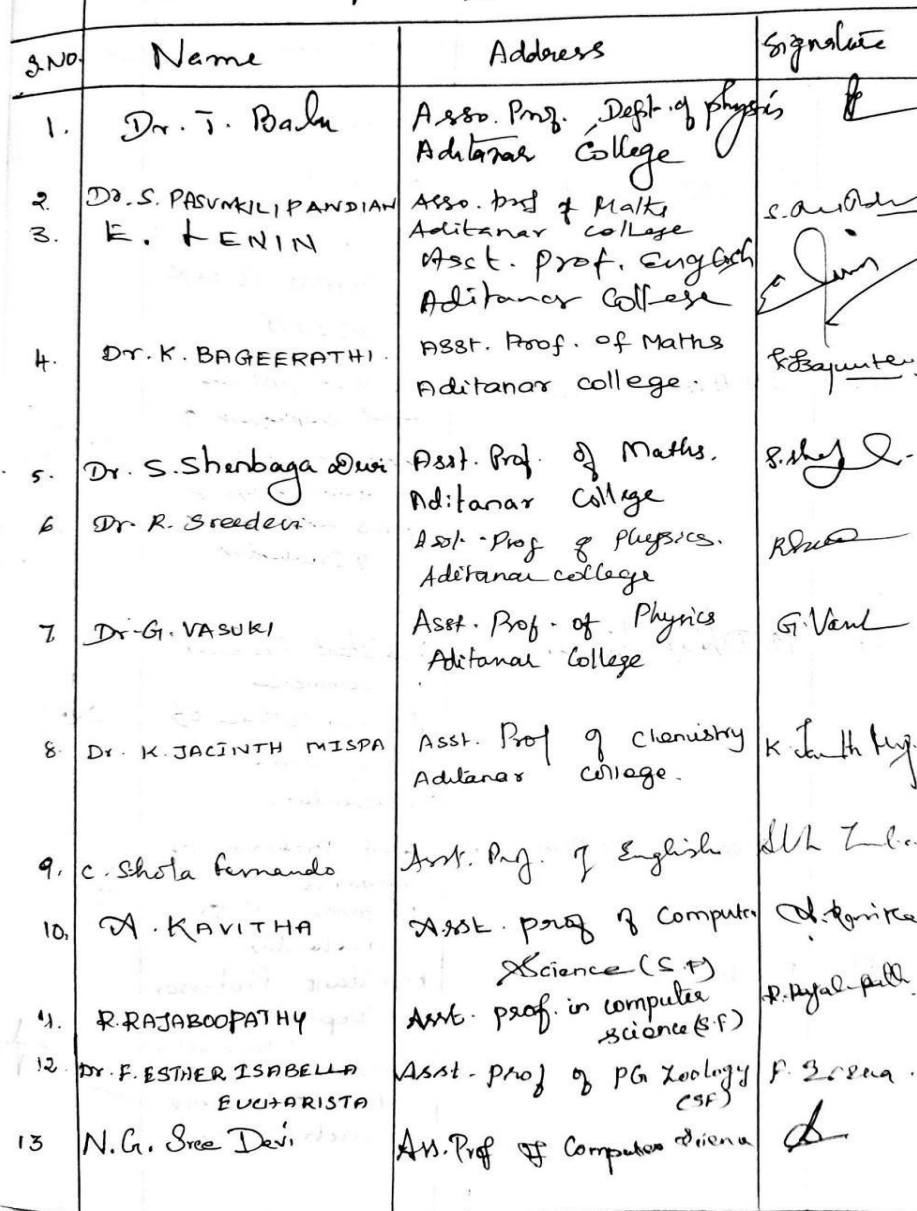 S.NO. Name Address Signature
1. Dr. T. Balu Asso. Prof. Dept. of physics
Aditanar College
2. Dr. S. PASUNKILIPANDIAN Asso. prof of Maths
Aditanar college
3. E. LENIN Asst. Prof. English
Aditanar College
4. Dr. K. BAGEERATHI. Asst. Prof. of Maths
Aditanar college.
5. Dr. S. Shenbaga Devi Asst. Prof. of Maths.
Aditanar College
6 Dr. R. Sreedevi Asst. Prof of Physics.
Aditanar college
7 Dr. G. VASUKI Asst. Prof. of Physics G. Vasuki
Aditanar College
8. Dr. K. JACINTH MISPA Asst. Prof of Chemistry
Aditanar college.
9. C. Shola Fernando Asst. Prof. of English
10, A. KAVITHA Asst. prof of Computer A. Kavitha
Science (S.F)
11. R. RAJABOOPATHY Asst. prof. in computer
science (S.F)
12. Dr. F. ESTHER ISABELLA Asst. Prof of PG Zoology
EUCHARISTA (SF)
13 N.G. Sree Devi Ass. Prof of Computer Science